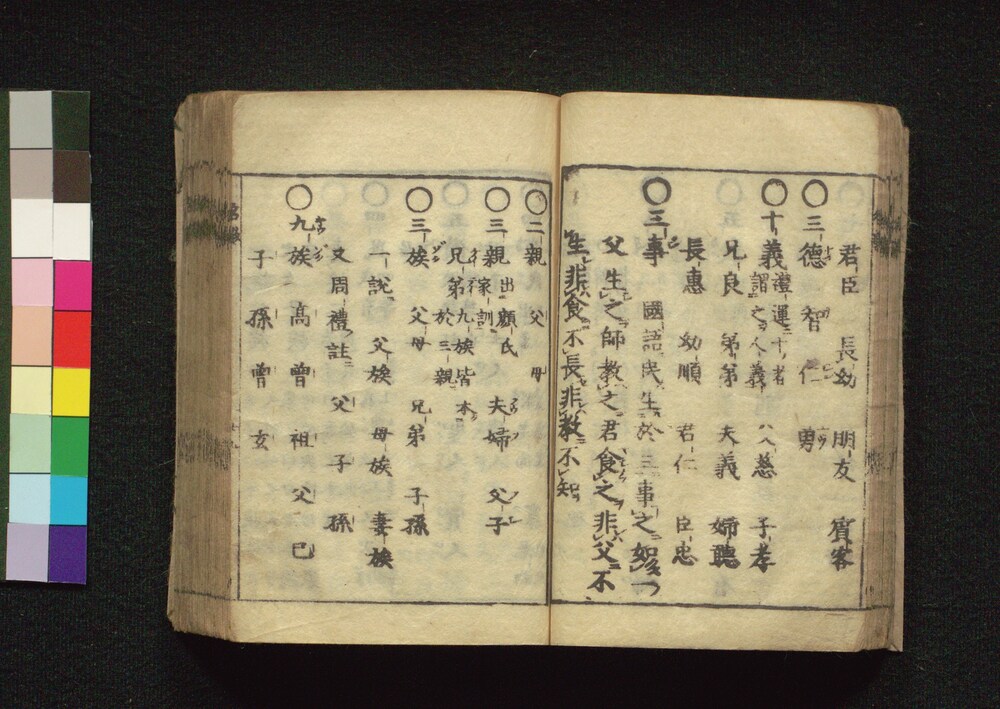 君臣 長幼 朋友 賓客
〇三德 智 仁 勇
〇十義 禮運十者謂之人義 八人 慈 子孝
兄良 弟弟 夫義 婦聽
長惠 幼順 君仁 臣忠
〇三事 國語 民生於三事之如一
父生之師教之君食之非父不
生非食不長非教不知
〇二親 父 母
〇三親 出顏氏家訓 夫婦 父子
兄弟 九族皆本於三親
〇三族 父母 兄弟 子孫
一說 父族 母族 妻族
又周禮註 父 子 孫
〇九族 高 曾 祖 父 己
子 孫 曾 玄